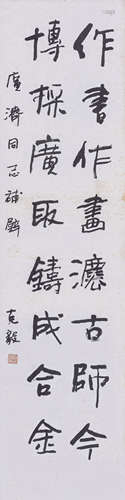 作書作畫灋古師今
博採廣取鑄成合金
廣濟同志補壁
克毅